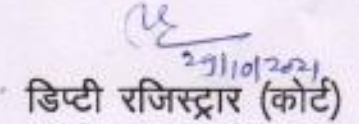 29/10/2021
डिप्टी रजिस्ट्रार (कोर्ट)